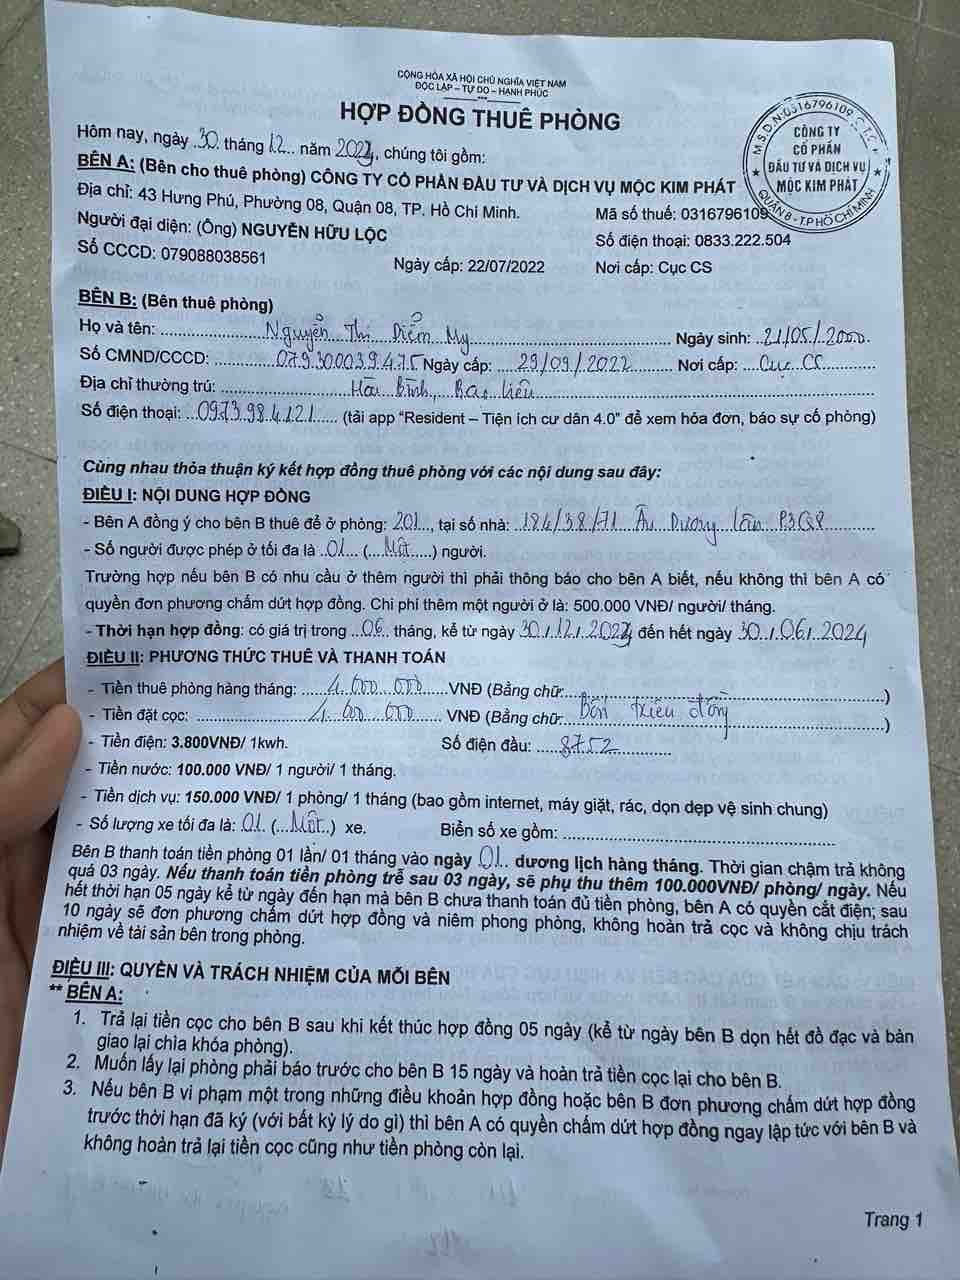 CỘNG HÒA XÃ HỘI CHỦ NGHĨA VIỆT NAM
ĐỘC LẬP – TỰ DO – HẠNH PHÚC
HỢP ĐỒNG THUÊ PHÒNG
M.S.D.N:0316796109-C.T.C.
CÔNG TY
CỔ PHẦN
ĐẦU TƯ VÀ DỊCH VỤ
MỘC KIM PHÁT
QUẬN 8 - T.P HỒ CHÍ MINH
Hôm nay, ngày 30 tháng 12 năm 2023, chúng tôi gồm:
BÊN A: (Bên cho thuê phòng) CÔNG TY CỔ PHẦN ĐẦU TƯ VÀ DỊCH VỤ MỘC KIM PHÁT
Địa chỉ: 43 Hưng Phú, Phường 08, Quận 08, TP. Hồ Chí Minh. Mã số thuế: 0316796109
Người đại diện: (Ông) NGUYỄN HỮU LỘC Số điện thoại: 0833.222.504
Số CCCD: 079088038561 Ngày cấp: 22/07/2022 Nơi cấp: Cục CS
BÊN B: (Bên thuê phòng)
Họ và tên: Nguyễn Thị Diểm My Ngày sinh: 21/05/2000
Số CMND/CCCD: 079300039475 Ngày cấp: 29/09/2022 Nơi cấp: Cục CS
Địa chỉ thường trú: Hòa Bình, Bạc Liêu
Số điện thoại: 0973984121 (tải app "Resident – Tiện ích cư dân 4.0" để xem hóa đơn, báo sự cố phòng)
Cùng nhau thỏa thuận ký kết hợp đồng thuê phòng với các nội dung sau đây:
ĐIỀU I: NỘI DUNG HỢP ĐỒNG
- Bên A đồng ý cho bên B thuê để ở phòng: 201, tại số nhà: 184/38/71 Âu Dương Lân P3Q8
- Số người được phép ở tối đa là 01 (Một) người.
Trường hợp nếu bên B có nhu cầu ở thêm người thì phải thông báo cho bên A biết, nếu không thì bên A có
quyền đơn phương chấm dứt hợp đồng. Chi phí thêm một người ở là: 500.000 VNĐ/ người/ tháng.
- Thời hạn hợp đồng: có giá trị trong 06 tháng, kể từ ngày 30/12/2023 đến hết ngày 30/06/2024
ĐIỀU II: PHƯƠNG THỨC THUÊ VÀ THANH TOÁN
- Tiền thuê phòng hàng tháng: 4.000.000 VNĐ (Bằng chữ )
- Tiền đặt cọc: 4.000.000 VNĐ (Bằng chữ Bốn triệu đồng )
- Tiền điện: 3.800VNĐ/ 1kwh. Số điện đầu: 8752
- Tiền nước: 100.000 VNĐ/ 1 người/ 1 tháng.
- Tiền dịch vụ: 150.000 VNĐ/ 1 phòng/ 1 tháng (bao gồm internet, máy giặt, rác, dọn dẹp vệ sinh chung)
- Số lượng xe tối đa là: 01 (Một) xe. Biển số xe gồm:
Bên B thanh toán tiền phòng 01 lần/ 01 tháng vào ngày 01 dương lịch hàng tháng. Thời gian chậm trả không
quá 03 ngày. Nếu thanh toán tiền phòng trễ sau 03 ngày, sẽ phụ thu thêm 100.000VNĐ/ phòng/ ngày. Nếu
hết thời hạn 05 ngày kể từ ngày đến hạn mà bên B chưa thanh toán đủ tiền phòng, bên A có quyền cắt điện; sau
10 ngày sẽ đơn phương chấm dứt hợp đồng và niêm phong phòng, không hoàn trả cọc và không chịu trách
nhiệm về tài sản bên trong phòng.
ĐIỀU III: QUYỀN VÀ TRÁCH NHIỆM CỦA MỖI BÊN
** BÊN A:
1. Trả lại tiền cọc cho bên B sau khi kết thúc hợp đồng 05 ngày (kể từ ngày bên B dọn hết đồ đạc và bàn
giao lại chìa khóa phòng).
2. Muốn lấy lại phòng phải báo trước cho bên B 15 ngày và hoàn trả tiền cọc lại cho bên B.
3. Nếu bên B vi phạm một trong những điều khoản hợp đồng hoặc bên B đơn phương chấm dứt hợp đồng
trước thời hạn đã ký (với bất kỳ lý do gì) thì bên A có quyền chấm dứt hợp đồng ngay lập tức với bên B và
không hoàn trả lại tiền cọc cũng như tiền phòng còn lại.
Trang 1